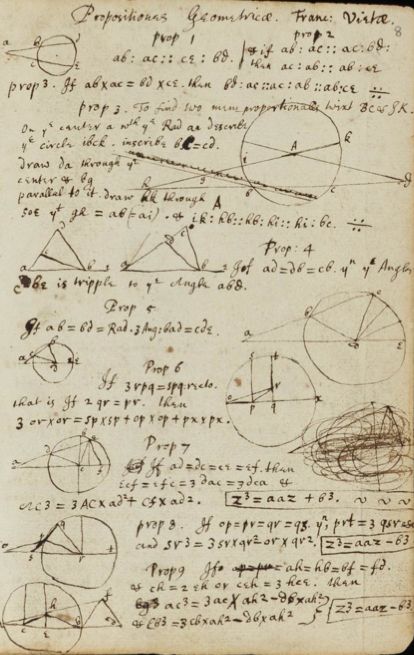 Propositiones Geometricæ. Franc: Vietæ.
8
prop 1
ab: ac:: ce: bd.
prop 2
& if ab: ac:: ac: bd:
then ac: ab:: ab: ce
prop 3. If ab x ac = bd x ce. then bd: ac:: ac: ab:: ab: ce ::
prop 3. To find two meane proportionalls twixt BC & IK.
On ye center a wth ye Rad aa describe
ye circle ibck. inscribe bc = cd.
draw da through ye
center & bg
parallel to it. draw hk through A
soe yt gh = ab (= ai) & ik: hb:: hb: hi:: hi: bc. ::
Prop: 4
If ad = db = cb. yn ye Angle
dbe is tripple to ye Angle abd.
Prop 5
If ab = bd = Rad. 3 Ang: bad = cde.
Prop 6
If 3rpq = spq: recto.
that is If 2qr = pr. then
3 or x or = sp x sp + op x op + px x px.
Prop 7
If ad = dc = ce = ef. then
ecf = efc = 3 dac = 3 dca &
ac3 = 3AC x ad2 + cf x ad2.
z3 = aaz + b3.
prop 8. If op = pr = qr = qs. yn prt = 3 qsr
and sr3 = 3sr x qr2 or x qr2.
z3 = aaz - b3
Prop 9 If ah = hb = bf = fd.
& ch = 2eh or ceh = 3 hce. then
ac3 = 3ac x ah2 - db x ah2
& cb3 = 3cb x ah2 - db x ah2
z3 = aaz - b3.